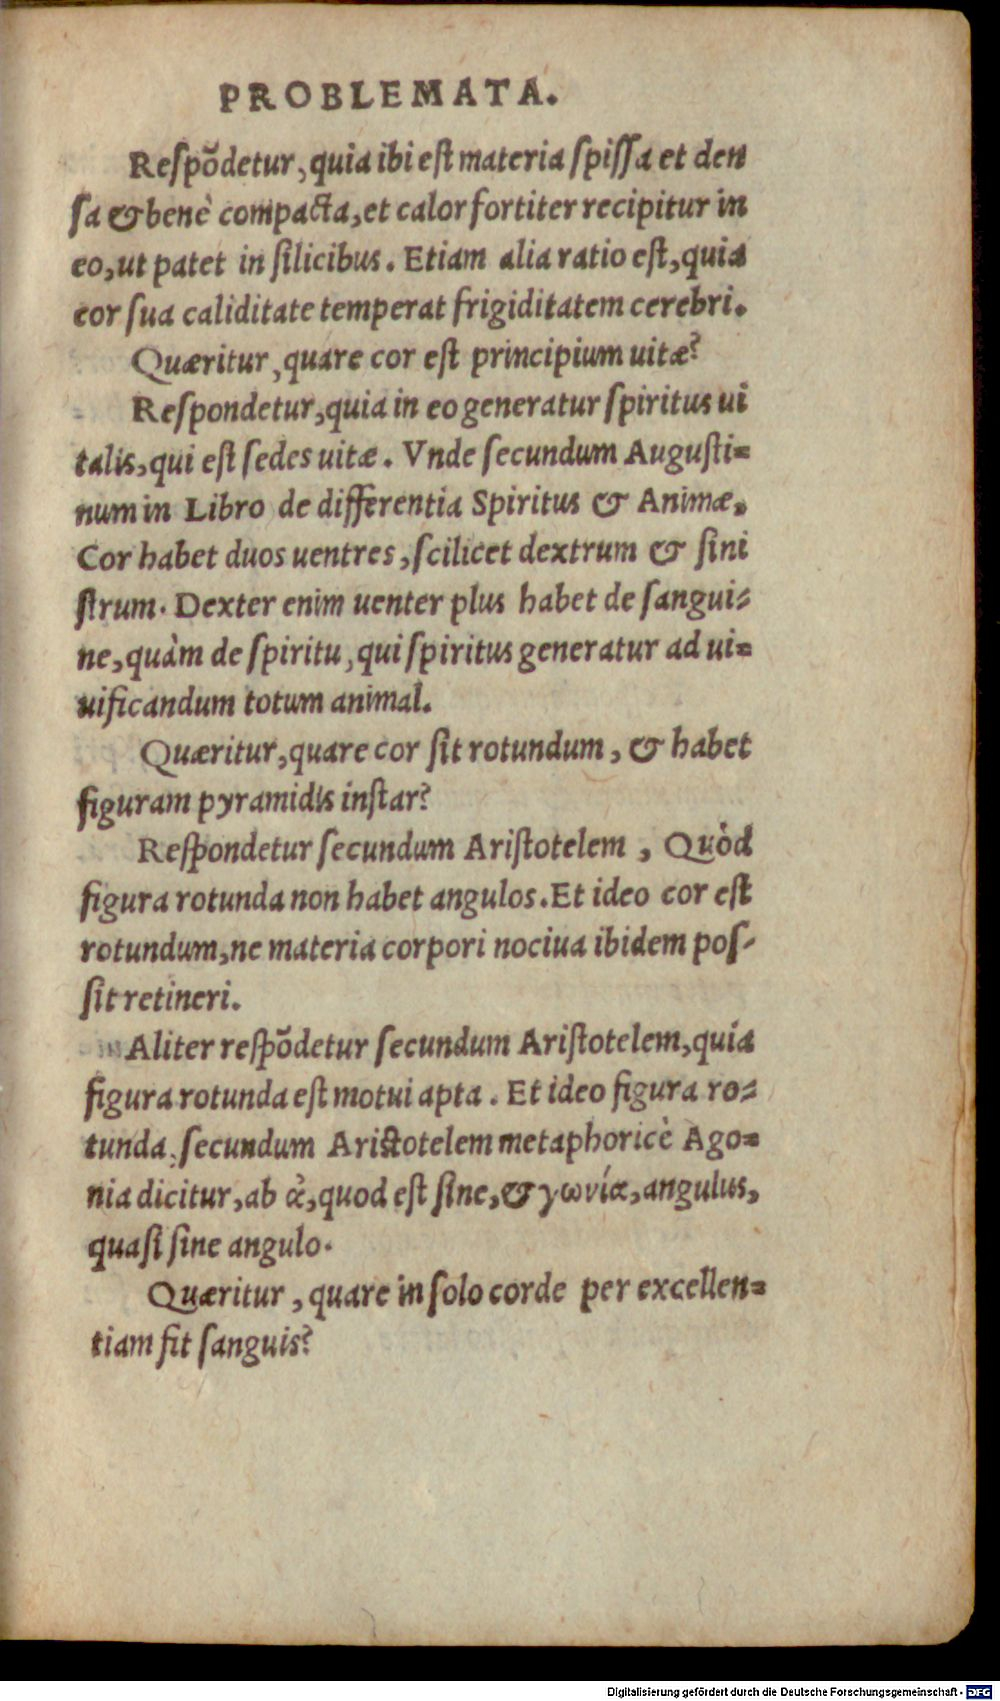 PROBLEMATA.
Respõdetur, quia ibi est materia spissa et den
sa & benè compacta, et calor fortiter recipitur in
eo, ut patet in silicibus. Etiam alia ratio est, quia
cor sua caliditate temperat frigiditatem cerebri.
Quæritur, quare cor est principium uitæ?
Respondetur, quia in eo generatur spiritus ui
talis, qui est sedes uitæ. Vnde secundum Augusti=
num in Libro de differentia Spiritus & Animæ,
Cor habet duos uentres, scilicet dextrum & sini
strum. Dexter enim uenter plus habet de sangui=
ne, quàm de spiritu, qui spiritus generatur ad ui=
uificandum totum animal.
Quæritur, quare cor sit rotundum, & habet
figuram pyramidis instar?
Respondetur secundum Aristotelem, Quòd
figura rotunda non habet angulos. Et ideo cor est
rotundum, ne materia corpori nociua ibidem pos=
sit retineri.
Aliter respõdetur secundum Aristotelem, quia
figura rotunda est motui apta. Et ideo figura ro=
tunda, secundum Aristotelem metaphoricè Ago=
nia dicitur, ab ἀ, quod est sine, & γωνία, angulus,
quasi sine angulo.
Quæritur, quare in solo corde per excellen=
tiam fit sanguis?
Digitalisierung gefördert durch die Deutsche Forschungsgemeinschaft - DFG